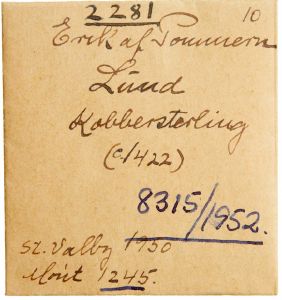 2281 10
Erik af Pommern
Lund
Kobbersterling
(c. 1422)
8315/1952.
St. Valby 1950
Mønt 1245.